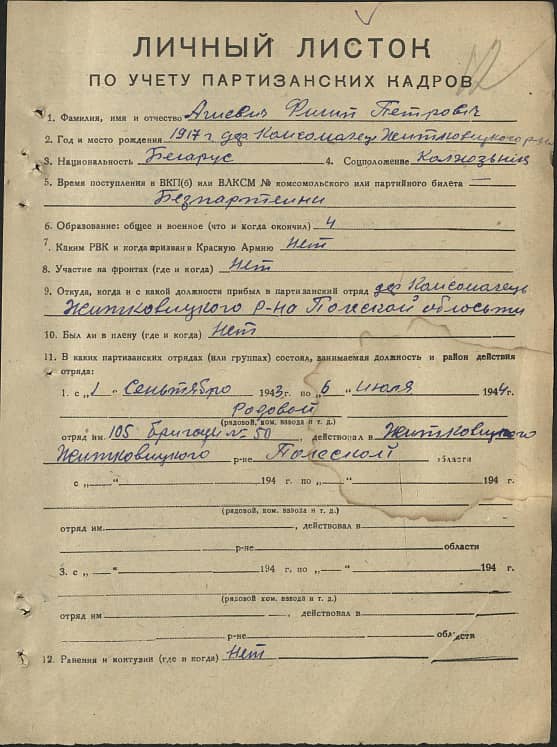 ЛИЧНЫЙ ЛИСТОК
ПО УЧЕТУ ПАРТИЗАНСКИХ КАДРОВ
1. Фамилия, имя и отчество Агиевич Филип Петровіч
2. Год и место рождения 1917 г дер Комсомалец Житковицкого р-н
3. Национальность Беларус 4. Соцположение Калхозьнік
5. Время поступления в ВКП(б) или ВЛКСМ № комсомольского или партийного билета —
Безпартейни
6. Образование: общее и военное (что и когда окончил) 4
7. Каким РВК и когда призван в Красную Армию Нет
8. Участие на фронтах (где и когда) Нет
9. Откуда, когда и с какой должности прибыл в партизанский отряд дер Комсомалец
Житковицкого р-на Полеской облосьти
10. Был ли в плену (где и когда) Нет
11. В каких партизанских отрядах (или группах) состоял, занимаемая должность и район действия
отряда:
1. с „1" Сеньтябро 1943 г. по „6" Июля 1944 г.
Родовой
(рядовой, ком. взвода и т. д.)
отряд им. 105 Бригади № 50, действовал в Житковицкого
Житковицкого р-не Полеской области
с „—" 194 г. по „—" 194 г.
(рядовой, ком. взвода и т. д.)
отряд им. , действовал в
р-не области
3. с „—" 194 г. по „—" 194 г.
(рядовой ком. взвода и т. д.)
отряд им , действовал в
р-не области
12. Ранения и контузии (где и когда) Нет